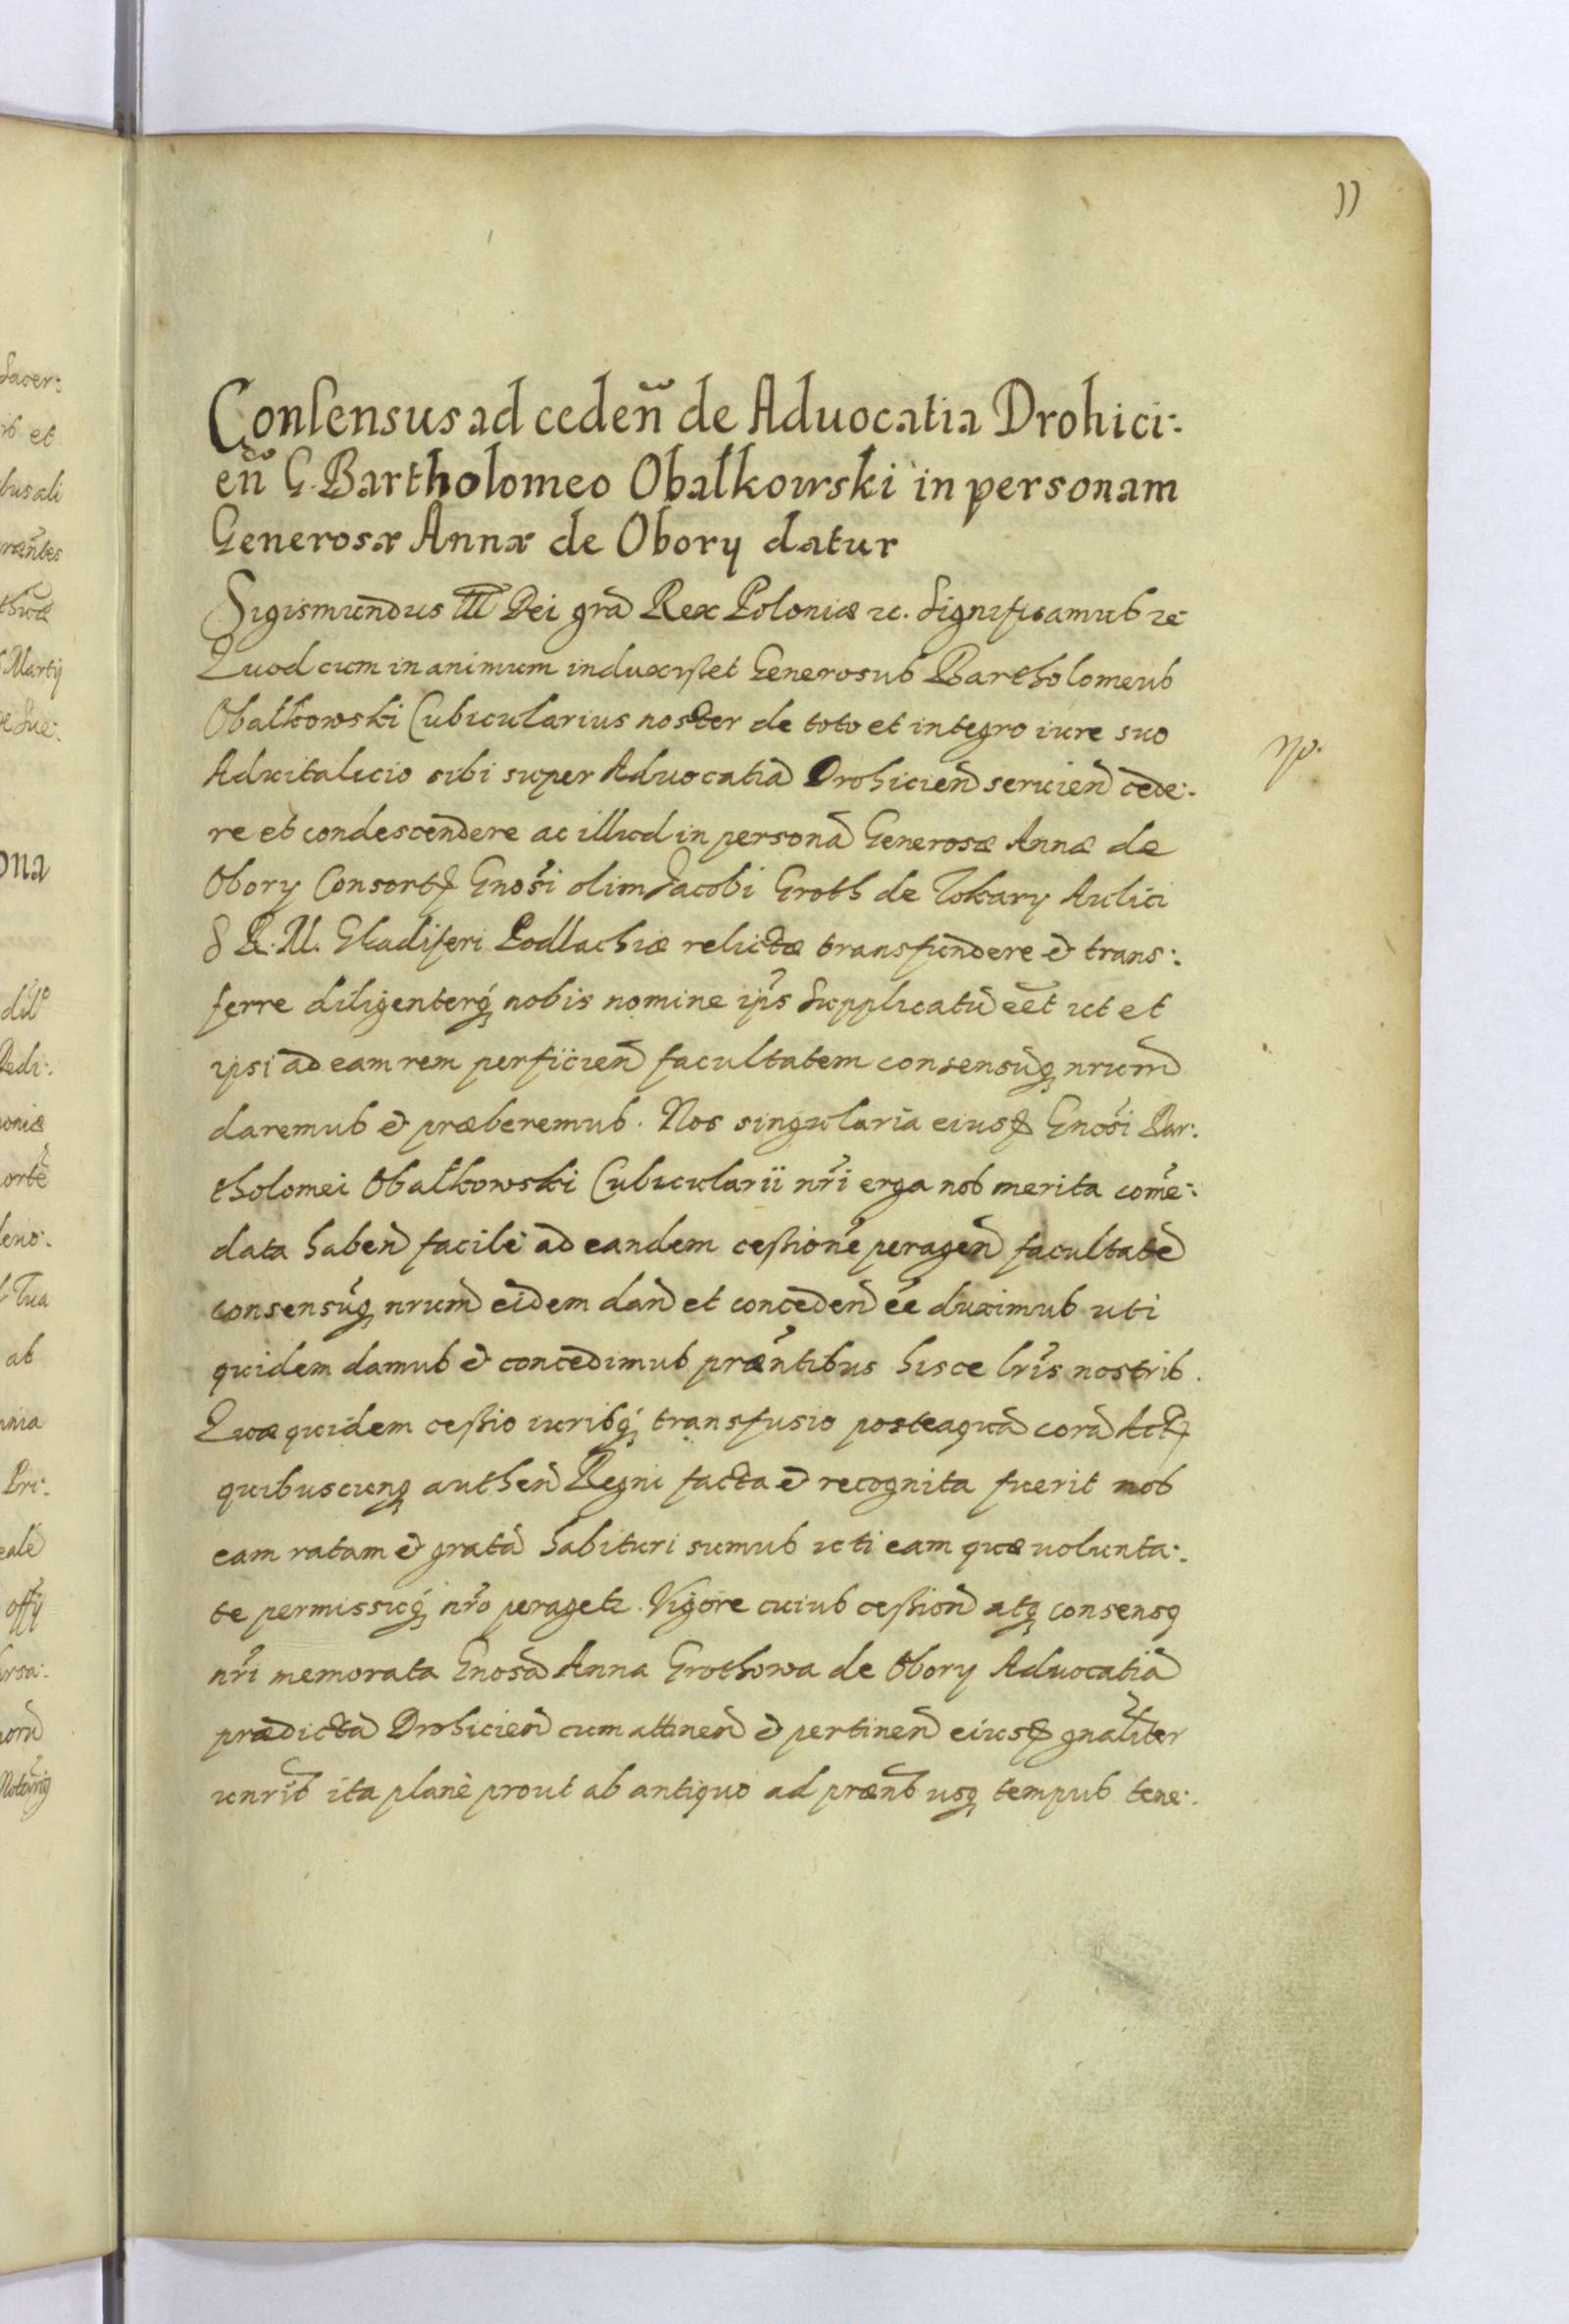 11
Consensus ad cedeñ de Aduocatia Drohici:
eñ G. Bartholomeo Obałkowski in personam
Generosæ Annæ de Obory datur
Sigismundus III Dei grã Rex Poloniæ ꝛc. Significamus ꝛc
Quod cum in animum induxisset Generosus Bartholomeus
Obałkowski Cubicularius noster de toto et integro iure suo
Aduitalicio sibi super Aduocatiã Drohicieñ seruieñ cede:
np.
re et condescendere ac illud in personã Generosæ Annæ de
Obory Consortꝭ Gnõsi olim Jacobi Groth de Tokary Aulici
S R. M. Gladiferi Podlachiæ relictæ transfundere et trans:
ferre diligenterq́ꝫ nobis nomine ip̃s Supplicatũ eẽt ut et
ipsi ad eam rem perficieñ facultatem consensũqꝫ nrum̃
daremus et præberemus. Nos singularia eiusꝭ Gnõsi Bar:
tholomei Obałkowski Cubicularii nr̃i erga nos merita com̃e:
data habeñ facile ad eandem cessionẽ perageñ facultatẽ
consensũqꝫ nrum̃ eidem dañ et concedeñ eẽ duximus uti
quidem damus et concedimus præñtibus hisce lr̃is nostris.
Quæ quidem cessio iurisq́ꝫ transfusio posteaquã corã Actꝭ
quibuscunqꝫ autheñ Regni facta et recognita fuerit nos
eam ratam et gratã habituri sumus uti eam quæ uolunta:
te permissuq́ꝫ nr̃o peragetꝛ. Vigore cuius cessioñ atqꝫ consensꝯ
nr̃i memorata Gnosã Anna Grothowa de Obory Aduocatiã
prædictã Drohicieñ cum attineñ et pertineñ eiusꝭ gnãliter
unr̃is ita planè prout ab antiquo ad præñs usqꝫ tempus tene: